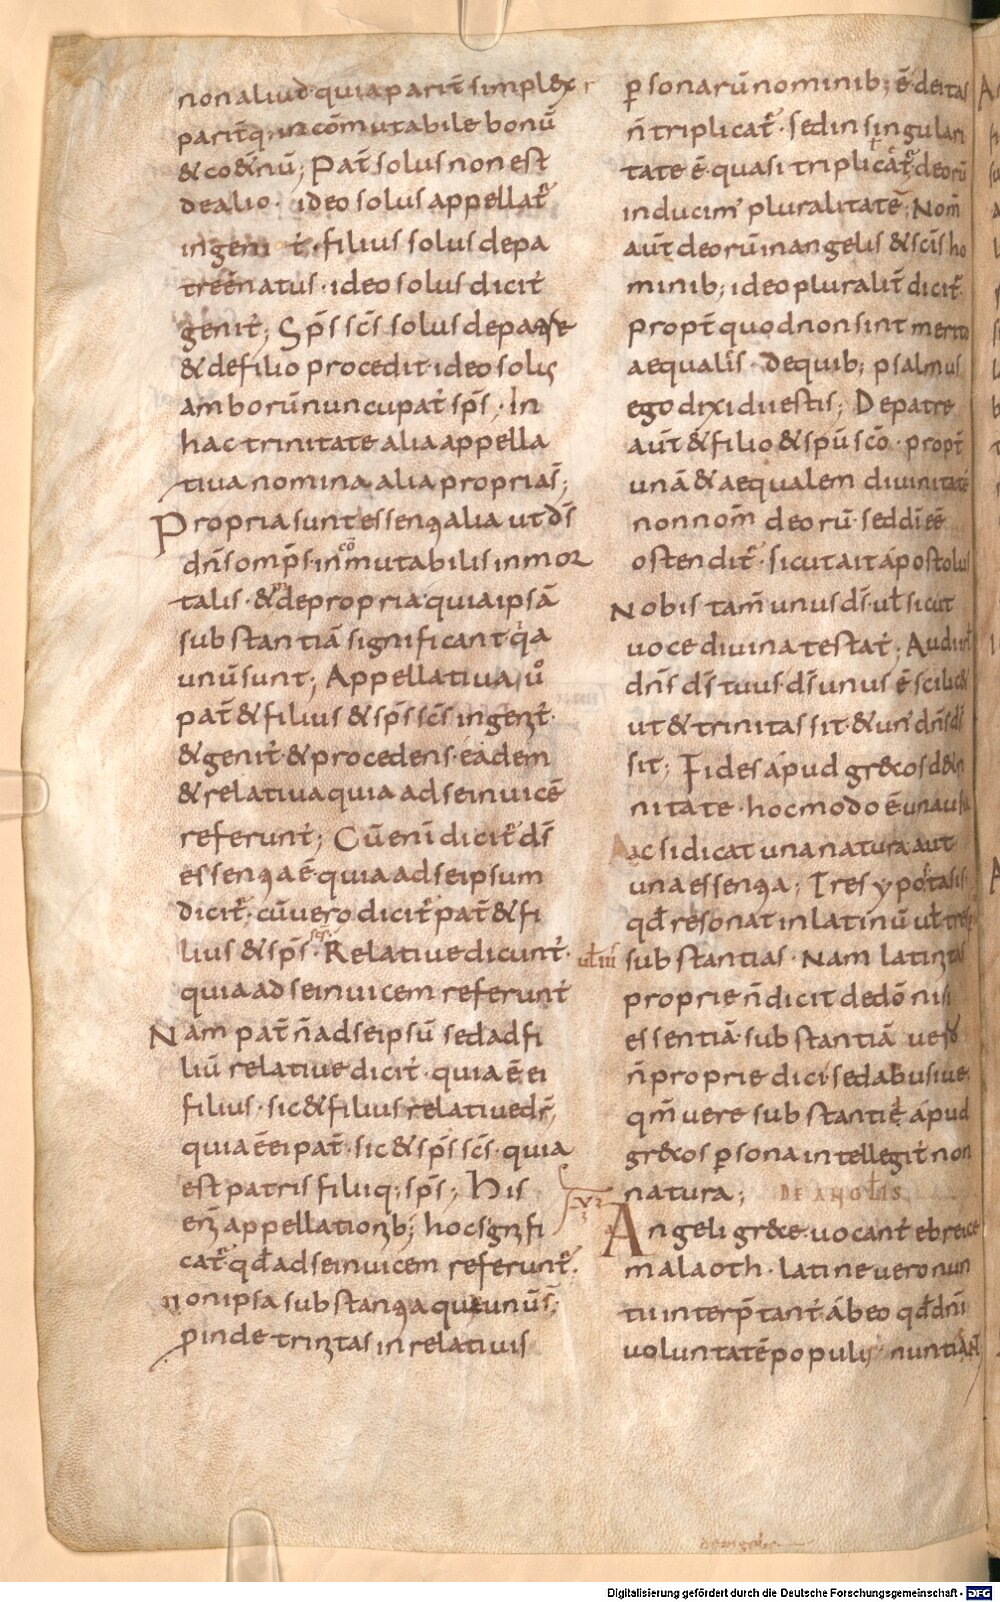 non aliud quia parit̄ simplex
parit̄q; incōmutabile bonū
& coæt̄nū; Pat̄ solus non est
de alio · ideo solus appellat̄
ingeni t̄ · filius solus de pa
tre ē natus · ideo solus dicit̄
genit̄; Sp̄s sc̄s solus de patre
& de filio procedit · ideo solus
amborū nuncupat̄ sp̄s · In
hac trinitate alia appella
tiua nomina alia propria s̄;
Propria sunt essentialia ut d̄s
dn̄s omp̄s · incōmutabilis inmor
talis · & inde propria quia ipsā
substantiā significant q̇a
unū sunt; Appellatiua u̇o
pat̄ & filius & sp̄s sc̄s ingenit̄ ·
& genit̄ & procedens · eadem
& relatiua quia ad se inuicē
referunt̄; Cū enī dicit̄ d̄s
essentia ē · quia ad se ipsum
dicit̄ · cū vero dicit̄ pat̄ & fi
lius & sp̄s scs̄ · Relatiue dicunt̄ ·
quia ad se inuicem referunt̄
Nam pat̄ n̄ ad se ipsū sed ad fi
liū relatiue dicit̄ · quia ē ei
filius · sic & filius relatiue dr̄,
quia ē ei pat̄ · sic & sp̄s sc̄s · quia
est patris filiiq; sp̄s; His
eni appellationib; hoc signifi
cat̄ · qd̄ ad se inuicem referunt̄ ·
non ipsa substantia qua unū s̄;
ꝓinde trinitas in relatiuis
ꝑsonarū nominib; ē · deitas
n̄ triplicat̄ · sed in singulari
tate ē · quasi triplicat̄ · deorū
inducim̄ pluralitatē; Nom̄
aut̄ deorū in angelis & sc̄is ho
minib; ideo pluralit̄ dicit̄ ·
propt̄ quod non sint merito
aequalis · de quib; psalmus
ego dixi dii estis; De patre
aut̄ & filio & spū scō · propt̄
unā & aequalem diuinitatē
non nom̄ deorū · sed dī eē
ostendit̄ · sicut ait apostolus
Nobis tam̄ unus d̄s · ul̄ sicut
uoce diuina testat̄; Audi
dn̄s d̄s tuus · d̄s unus ē scilic&
ut & trinitas sit · & un̄ dn̄s d̄s
sit; Fides apud gr&cos de tri
nitate · hoc modo ē · una usia
ac si dicat una natura aut
una essentia; Tres ypostasis
qd̄ resonat in latinū ul̄ tres
ul̄ iii
substantias · Nam latinitas
proprie n̄ dicit de dō nisi
essentiā · substantiā vero
n̄ proprie dici · sed abusiue
qm̄ vere substantie apud
gr&cos ꝑsona intellegit̄ non
natura; DE ANGELIS
VI
Angeli gr&ce uocant̄ ebreice
malaoth · latine uero nun
tii interp̄tant̄ · ab eo qd̄ dn̄i
voluntatē populis nuntiant
de angelis
Digitalisierung gefördert durch die Deutsche Forschungsgemeinschaft - DFG